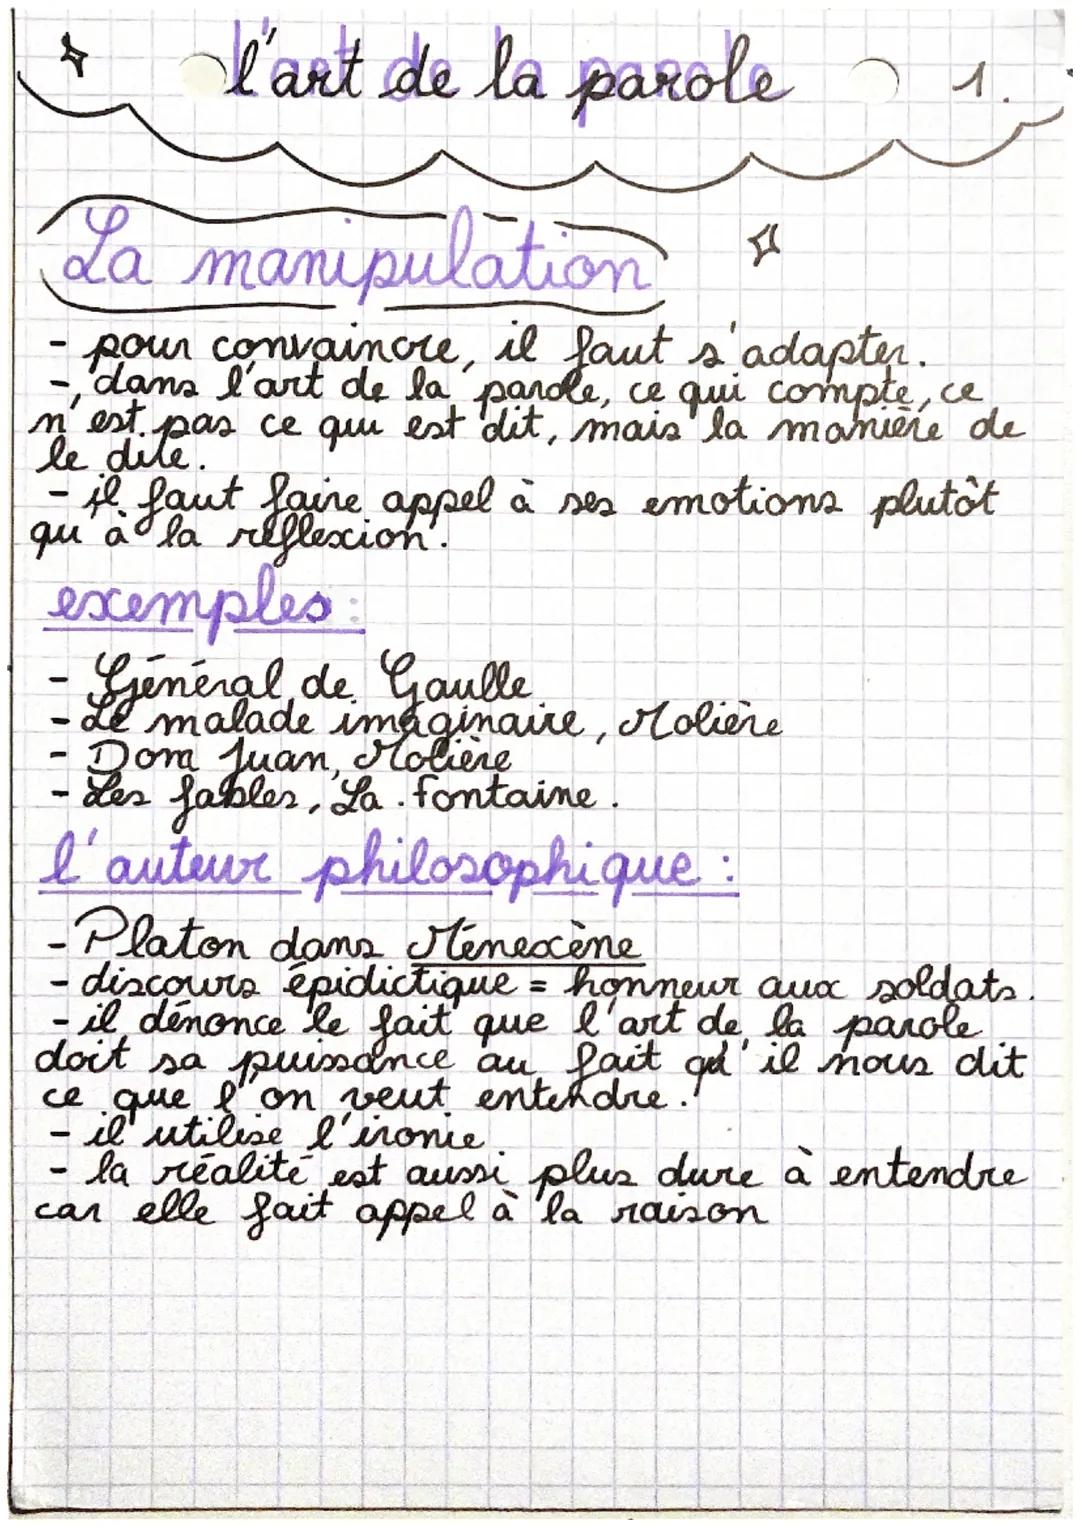 l'art de la parole 1.
La manipulation
- pour convaincre, il faut s'adapter.
- dans l'art de la parole, ce qui compte, ce
n'est pas ce qui est dit, mais la manière de
le dire.
- il faut faire appel à ses emotions plutôt
qu'à la réflexion.
exemples :
- Général de Gaulle
- Le malade imaginaire, Molière
- Dom Juan, Molière
- Les fables, La Fontaine.
l'auteur philosophique :
- Platon dans Ménexène
- discours épidictique = honneur aux soldats.
- il dénonce le fait que l'art de la parole
doit sa puissance au fait qu'il nous dit
ce que l'on veut entendre.
- il utilise l'ironie
- la réalité est aussi plus dure à entendre
car elle fait appel à la raison